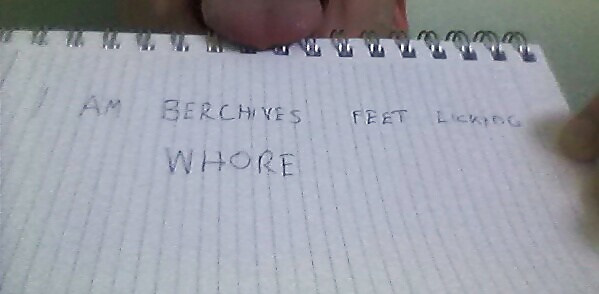 I AM BERCHIVES FEET LICKING
WHORE